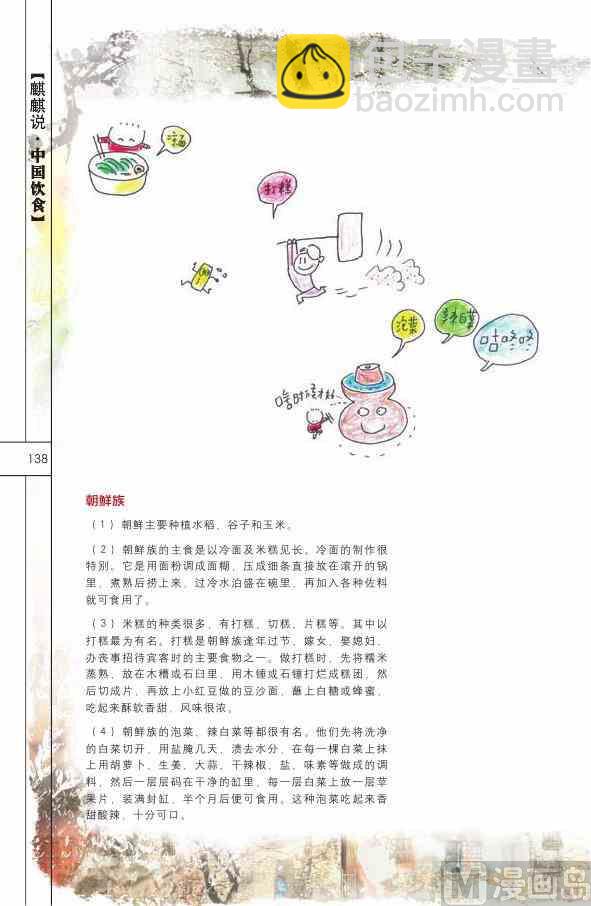 包子漫畫
baozimh.com
【麒麟说·中国饮食】
凉面
打糕
泡菜
辣白菜
咕咚咚
啥时候才好
138
朝鲜族
（1）朝鲜主要种植水稻、谷子和玉米。
（2）朝鲜族的主食是以冷面及米糕见长。冷面的制作很
特别。它是用面粉调成面糊、压成细条直接放在滚开的锅
里、煮熟后捞上来、过冷水泊盛在碗里、再加入各种佐料
就可食用了。
（3）米糕的种类很多、有打糕、切糕、片糕等。其中以
打糕最为有名。打糕是朝鲜族逢年过节、嫁女、娶媳妇、
办丧事招待宾客时的主要食物之一。做打糕时、先将糯米
蒸熟、放在木槽或石臼里、用木锤或石锤打烂成糕团、然
后切成片、再放上小红豆做的豆沙面、蘸上白糖或蜂蜜、
吃起来酥软香甜、风味很浓。
（4）朝鲜族的泡菜、辣白菜等都很有名。他们先将洗净
的白菜切开、用盐腌几天、渍去水分、在每一棵白菜上抹
上用胡萝卜、生姜、大蒜、干辣椒、盐、味素等做成的调
料、然后一层层码在干净的缸里、每一层白菜上放一层苹
果片、装满封缸、半个月后便可食用。这种泡菜吃起来香
甜酸辣、十分可口。
M 漫画岛